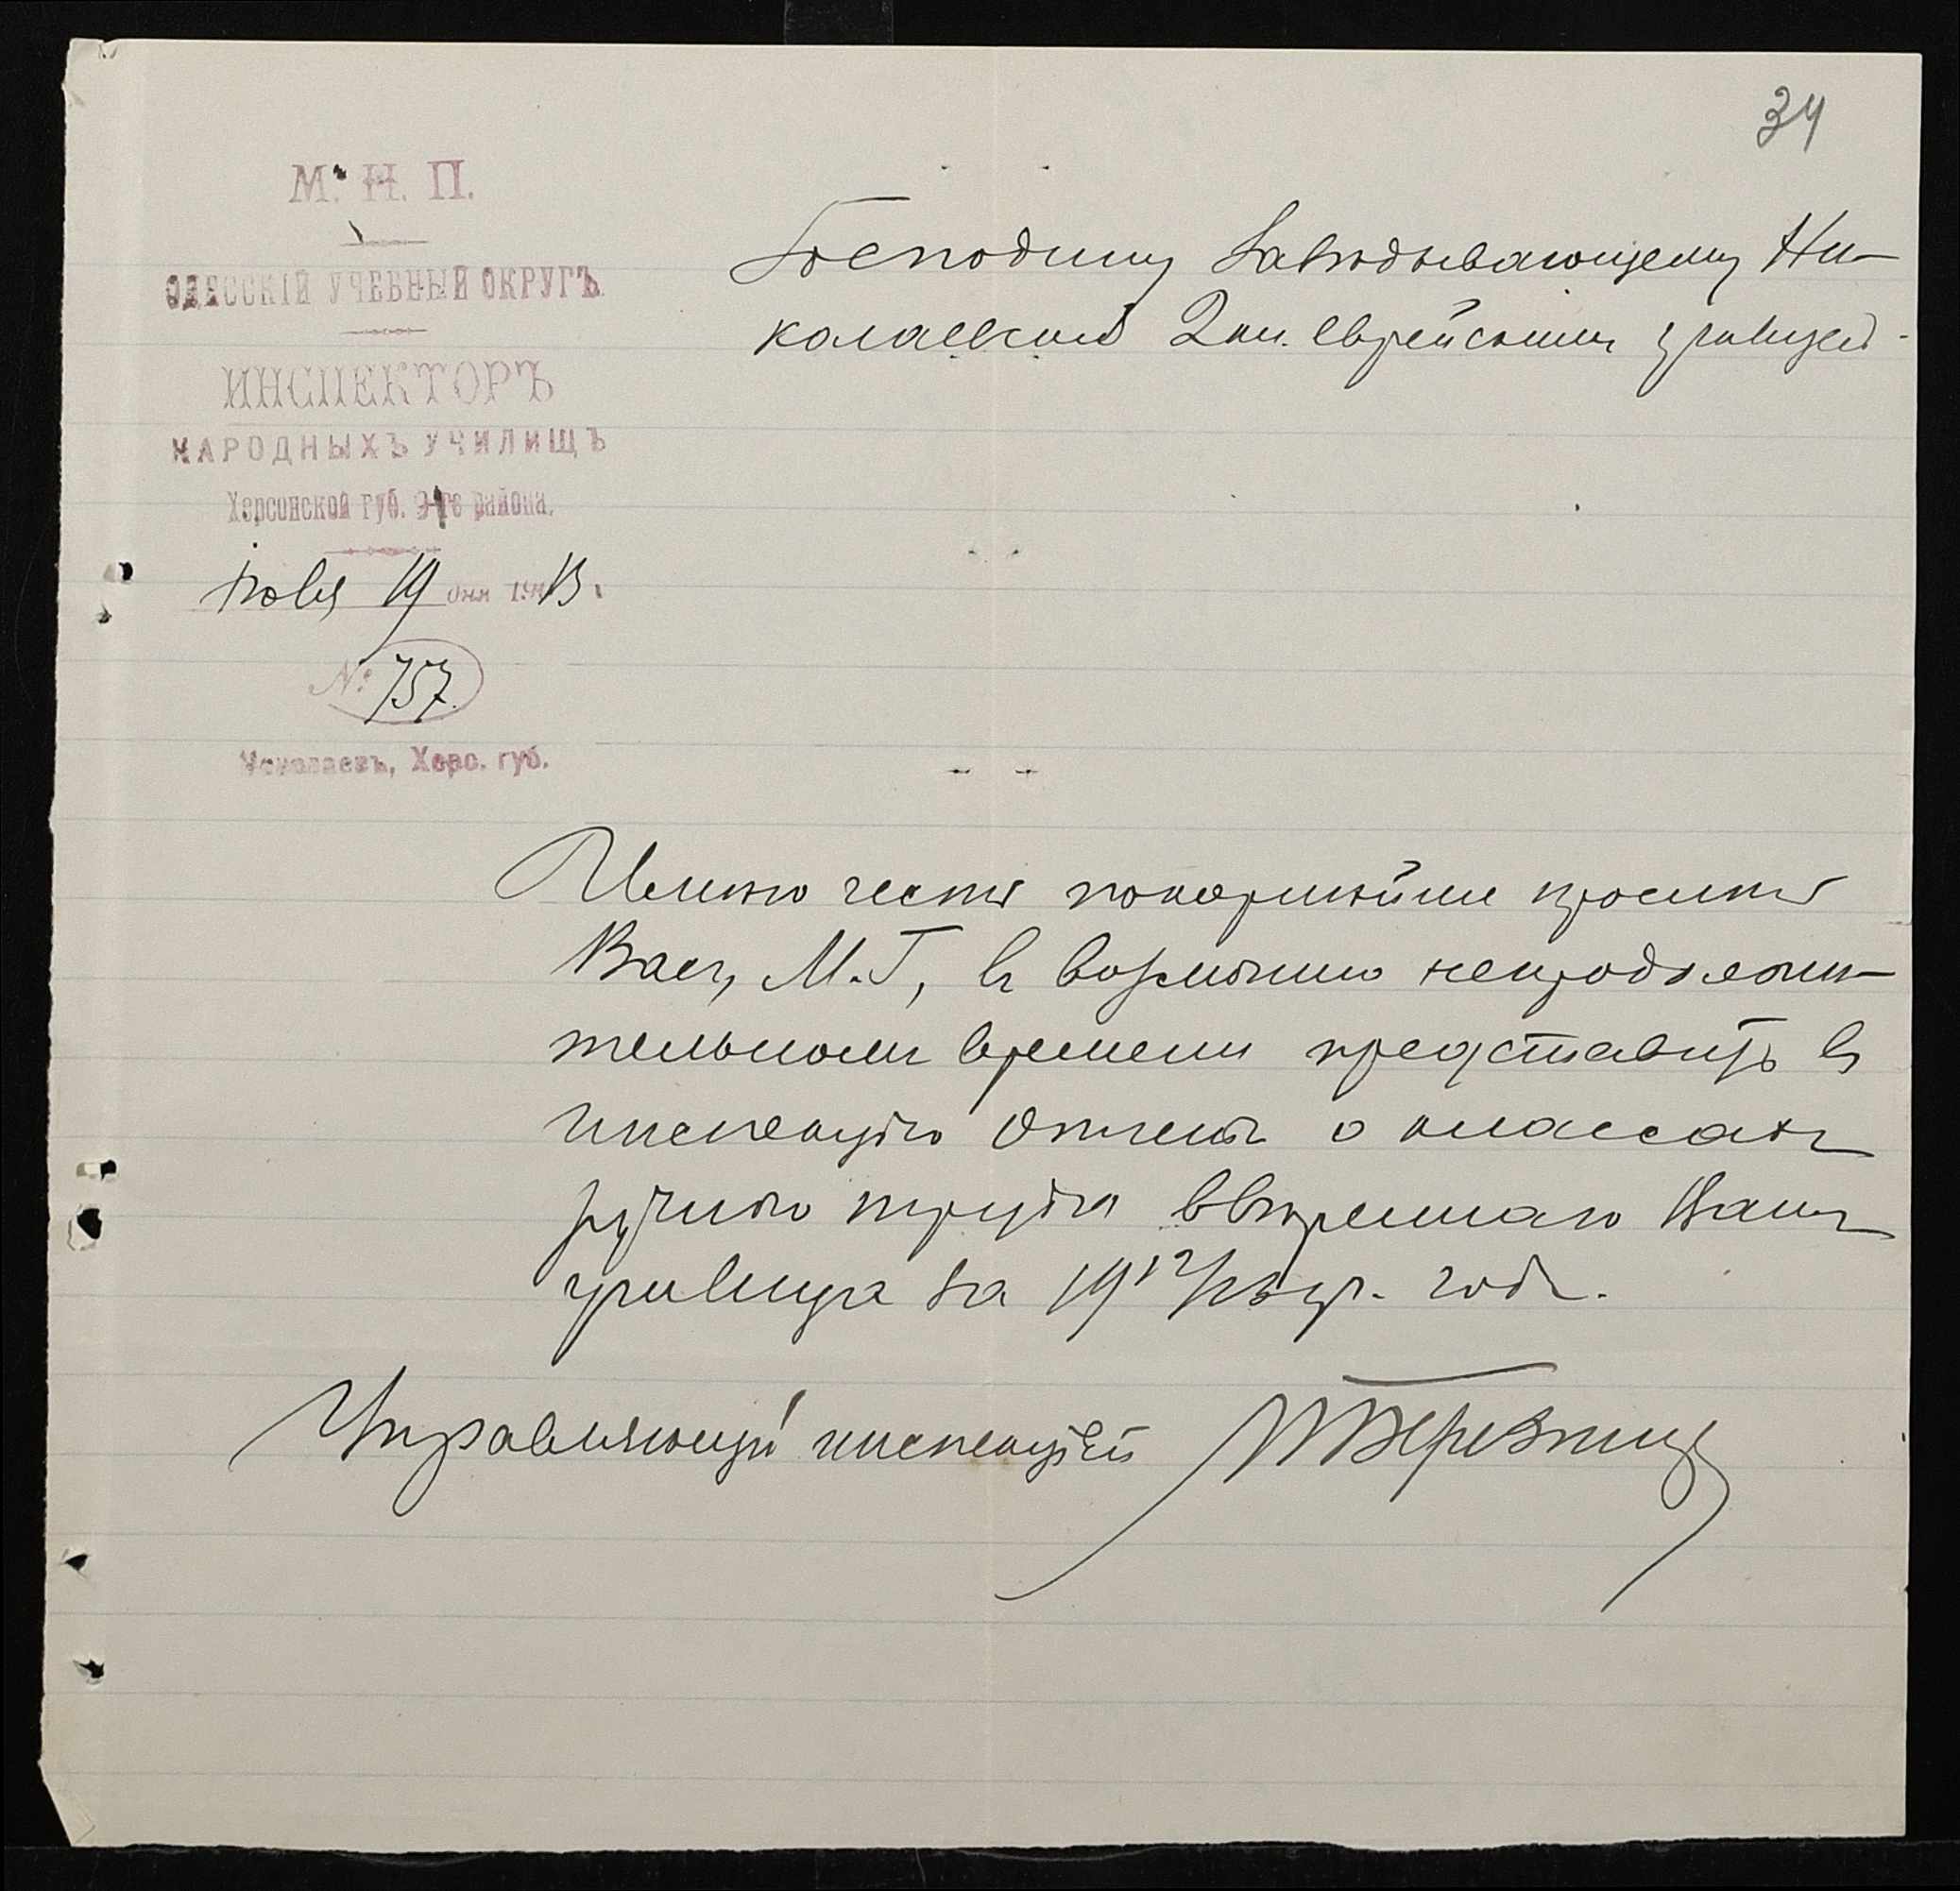 34
М. Н. П.
ОДЕССКІЙ УЧЕБНЫЙ ОКРУГЪ.
ИНСПЕКТОРЪ
НАРОДНЫХЪ УЧИЛИЩЪ
Херсонской губ. го района.
19 дня 1913.
№ 757.
Николаевъ, Херс. губ.
Господину Завѣдывающему Ни-
колаевским 2 кл. еврейскимъ училищем
Имѣю честь покорнѣйше просить
Васъ, М. Г., въ возможно непродолжи-
тельномъ времени представить въ
инспекцію отчетъ о классахъ
ручного труда ввѣреннаго Вамъ
училища за 1912/13 уч. годъ.
Управляющій инспекціей